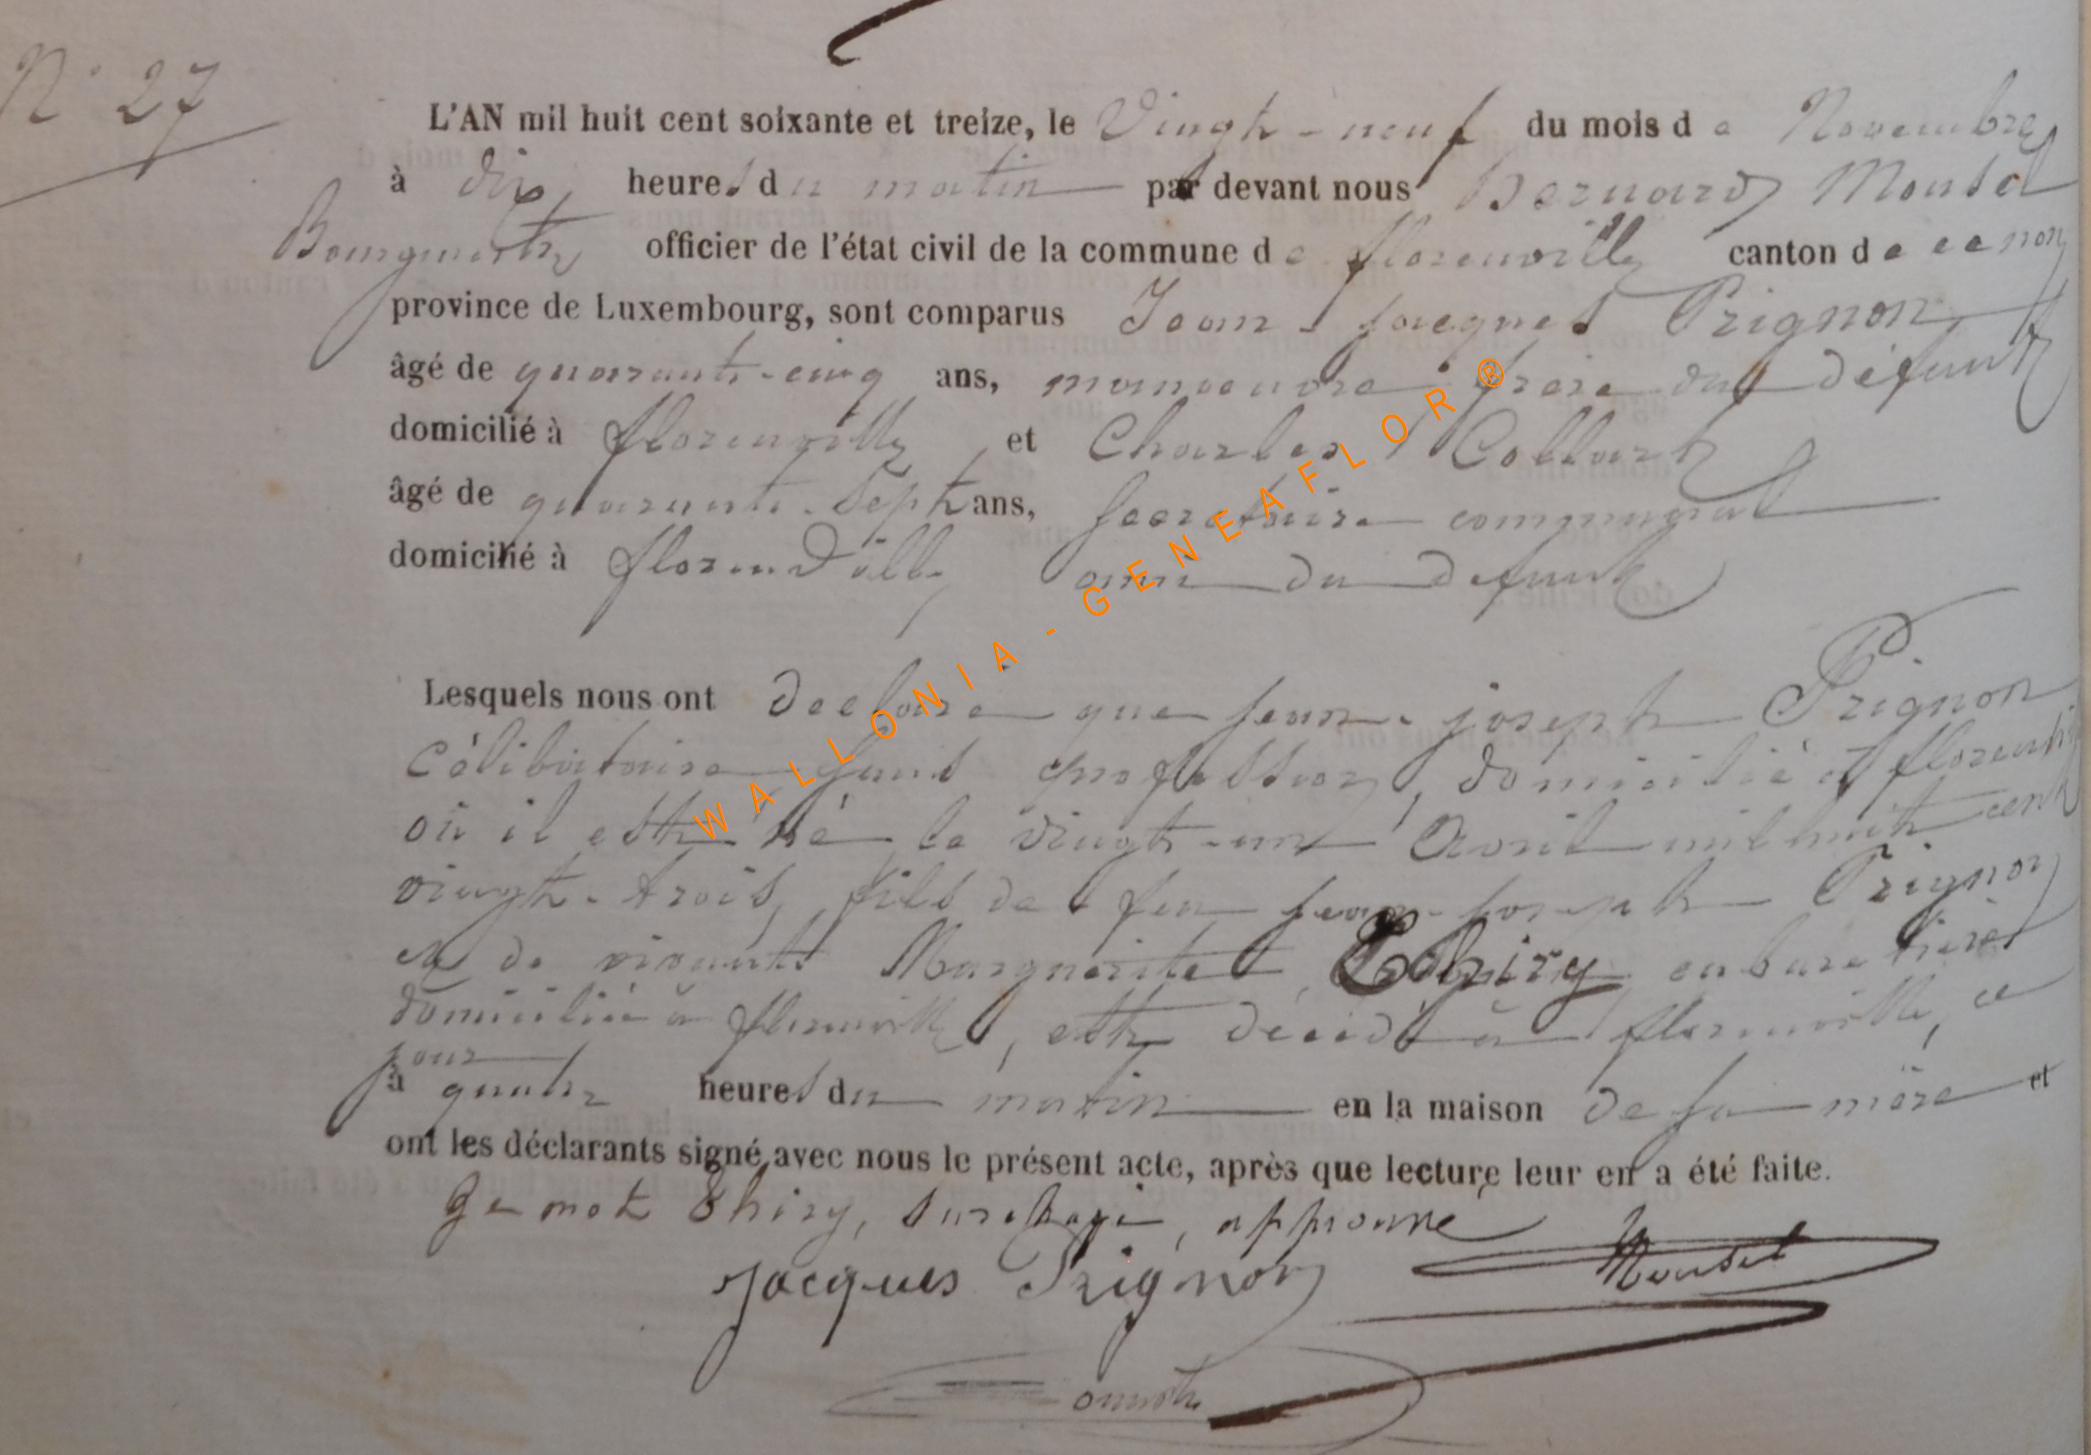 N° 27
L'AN mil huit cent soixante et treize, le Vingt-neuf du mois de Novembre
à dix heures du matin par devant nous Bernard Mousel
Bourgmestre officier de l'état civil de la commune de florenville canton de ce nom
province de Luxembourg, sont comparus Jean-Jacques Prignon
âgé de quarante-cinq ans, manoeuvre frère du défunt
domicilié à florenville et Charles Collart
âgé de quarante-sept ans, Secretaire communal
domicilié à florenville ami du defunt
Lesquels nous ont declaré que jean-joseph Prignon
célibataire sans profession, domicilié à florenville
où il est né le vingt-un Avril mil huit cent
vingt-trois, fils de feu jean-joseph Prignon
et de vivante Marguerite Thiry, cabaretière
domiciliée à florenville, est décédé à florenville, ce
jour
à quatre heures du matin en la maison de sa mère et
ont les déclarants signé avec nous le présent acte, après que lecture leur en a été faite.
Le mot Thiry, surchargé, approuvé
Jacques Prignon Mousel
WALLONIA - GENEAFLOR ®